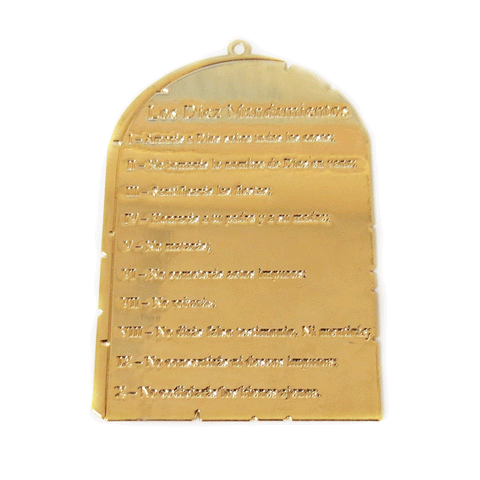 Los Diez Mandamientos
I – Amarás a Dios sobre todas las cosas;
II – No tomarás el nombre de Dios en vano;
III – Santificarás las fiestas;
IV – Honrarás a tu padre y a tu madre;
V – No matarás;
VI – No cometerás actos impuros;
VII – No robarás;
VIII – No dirás falso testimonio, Ni mentirás;
IX – No consentirás ni deseos impuros;
X – No codiciarás los bienes ajenos.